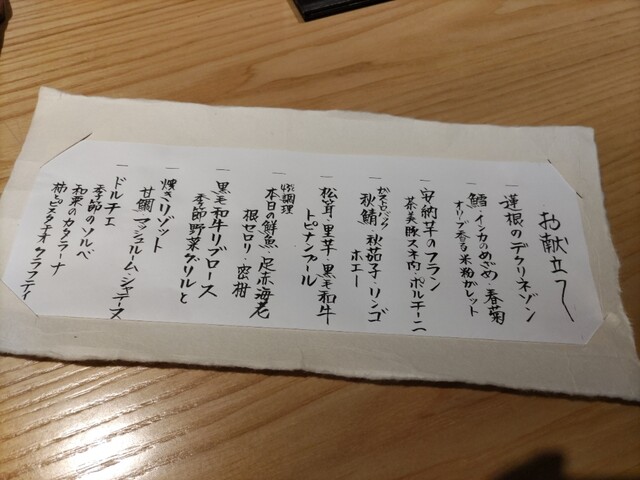 お献立て
一 蓮根のデクリネゾン
一 鱈・インカのめざめ・春菊
オリーブ香る米粉ガレット
一 安納芋のフラン
茶美豚スネ肉・ポルチーニ
一 ガストロバック
秋鯖・秋茄子・リンゴ
ホエー
一 松茸・里芋・黒毛和牛
トピナンブール
一 炭調理
本日の鮮魚・足赤海老
根セロリ・蜜柑
一 黒毛和牛リブロース
季節野菜グリルと
一 焼きリゾット
甘鯛・マッシュルーム・シャテーヌ
一 ドルチェ
季節のソルベ
和栗のカタラーナ
柿とピスタチオ クラフティ